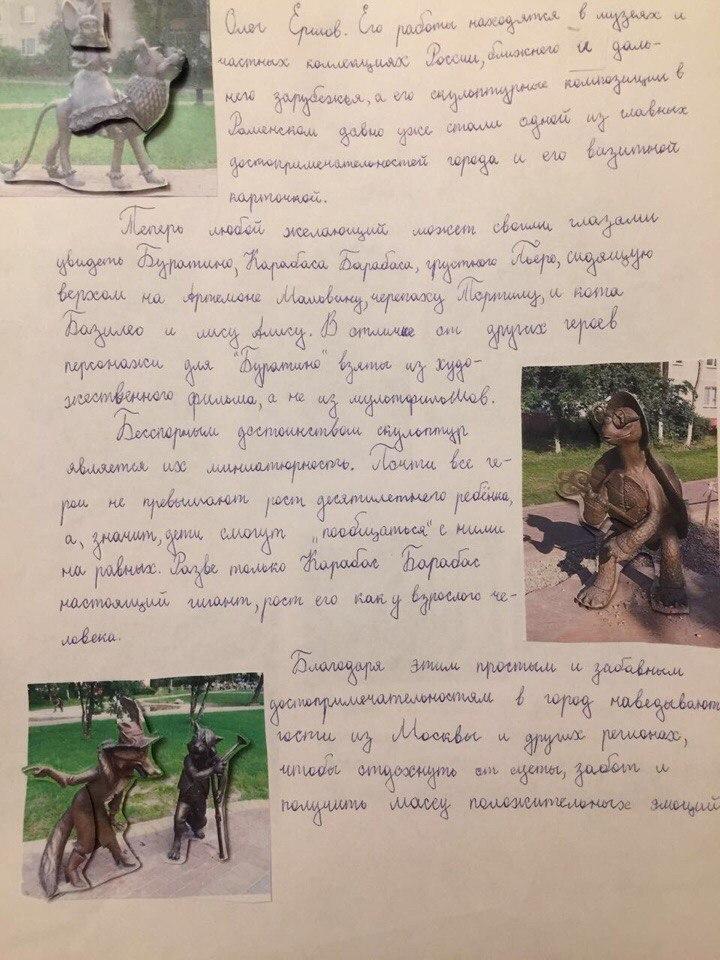 Олег Ершов. Его работы находятся в музеях и
частных коллекциях России, ближнего и даль-
него зарубежья, а его скульптурные композиции в
Раменском давно уже стали одной из главных
достопримечательностей города и его визитной
карточкой.
Теперь любой желающий может своими глазами
увидеть Буратино, Карабаса Барабаса, грустного Пьеро, сидящую
верхом на Артемоне Мальвину, черепаху Тортиллу, и кота
Базилео и лису Алису. В отличие от других героев
персонажи для "Буратино" взяты из худо-
жественного фильма, а не из мультфильмов.
Бесспорным достоинством скульптур
является их миниатюрность. Почти все ге-
рои не превышают рост десятилетнего ребёнка,
а, значит, дети смогут „пообщаться" с ними
на равных. Разве только Карабас Барабас
настоящий гигант, рост его как у взрослого че-
ловека.
Благодаря этим простым и забавным
достопримечательностям в город наведывают
гости из Москвы и других регионах,
чтобы отдохнуть от суеты, забот и
получить массу положительных эмоций